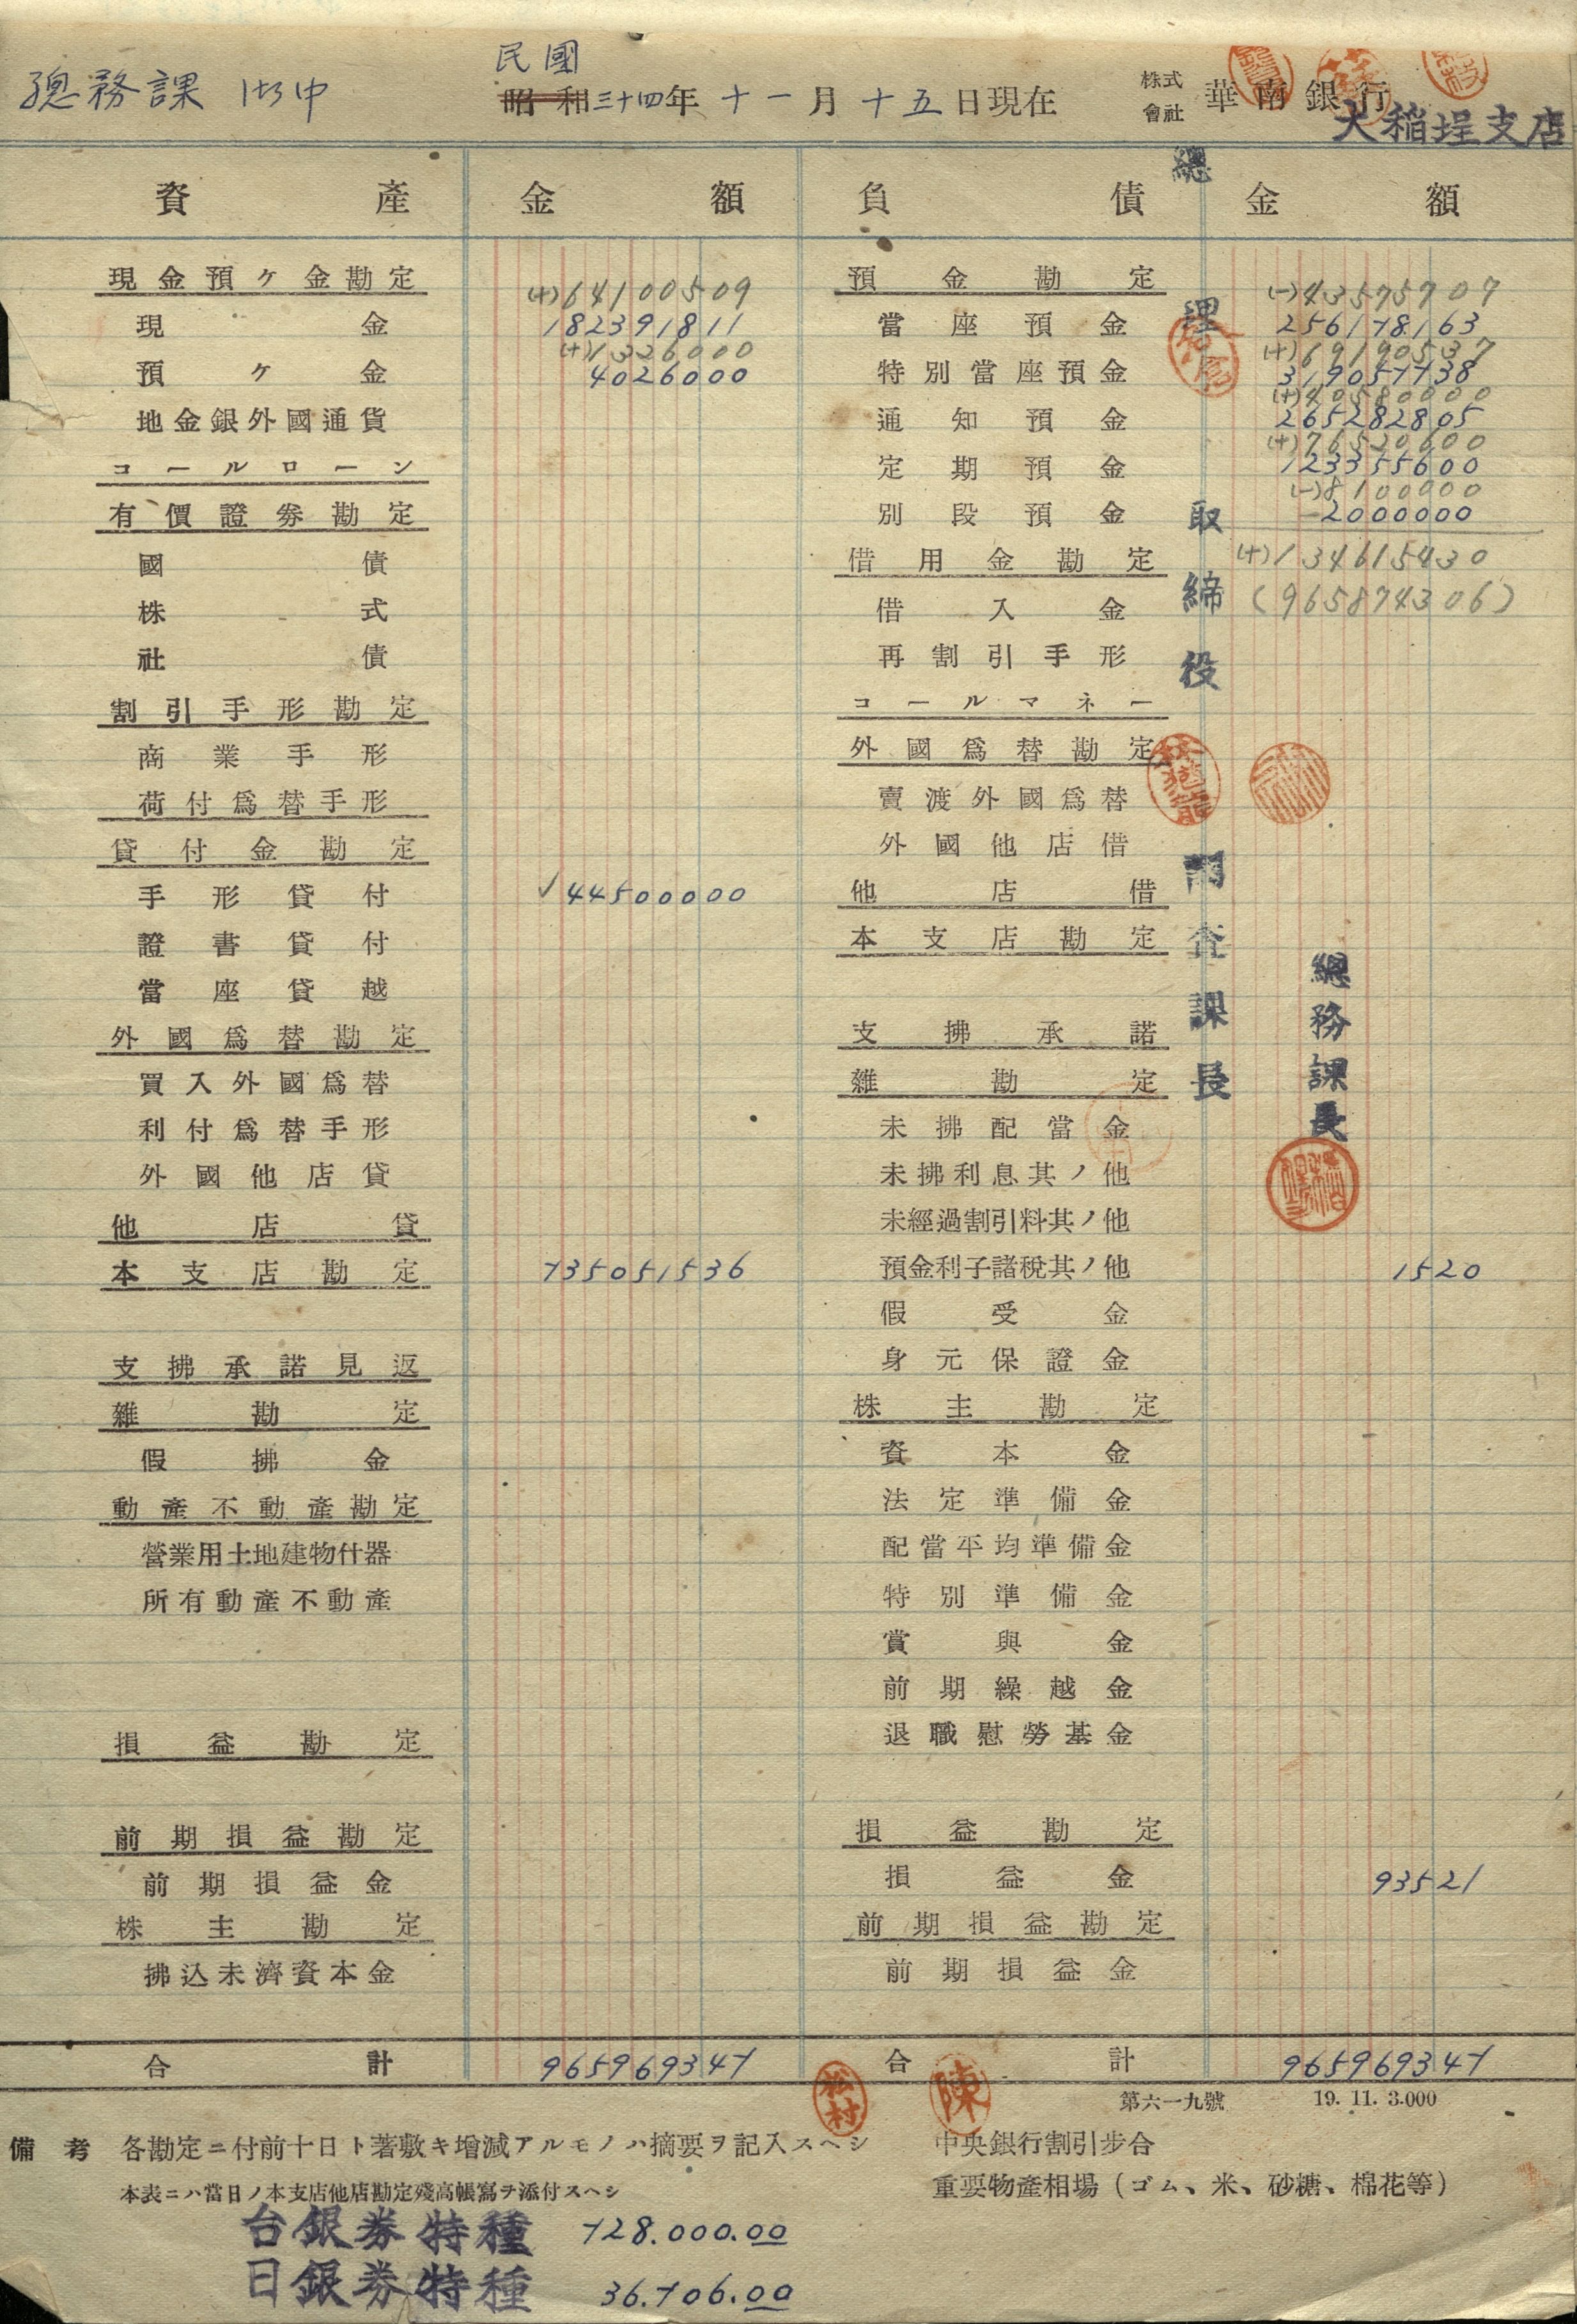 總務課 御中
民國
昭和三十四年十一月十五日現在
株式會社 華南銀行
大稻埕支店
資產 金額 負債 金額
現金預ヶ金勘定 (+)64100509
現金 182391811
(+)1326000
預ヶ金 4026000
地金銀外國通貨
コールローン
有價證券勘定
國債
株式
社債
割引手形勘定
商業手形
荷付爲替手形
貸付金勘定
手形貸付 ✓44500000
證書貸付
當座貸越
外國爲替勘定
買入外國爲替
利付爲替手形
外國他店貸
他店貸
本支店勘定 735051536
支拂承諾見返
雜勘定
假拂金
動產不動產勘定
營業用土地建物什器
所有動產不動產
損益勘定
前期損益勘定
前期損益金
株主勘定
拂込未濟資本金
合計 965969347
預金勘定 (-)43575707
當座預金 256178163
(+)69190537
特別當座預金 319057738
(+)40580000
通知預金 265282805
(+)76520600
定期預金 123355600
(-)8100000
別段預金 2000000
借用金勘定 (+)134615430
借入金 (965874306)
再割引手形
コールマネー
外國爲替勘定
賣渡外國爲替
外國他店借
他店借
本支店勘定
支拂承諾
雜勘定
未拂配當金
未拂利息其ノ他
未經過割引料其ノ他
預金利子諸稅其ノ他 1520
假受金
身元保證金
株主勘定
資本金
法定準備金
配當平均準備金
特別準備金
賞與金
前期繰越金
退職慰勞基金
損益勘定
損益金 93521
前期損益勘定
前期損益金
合計 965969347
總理
取締役
調查課長
總務課長
松村
陳
第六一九號 19. 11. 3.000
備考 各勘定ニ付前十日ト著敷キ增減アルモノハ摘要ヲ記入スヘシ
本表ニハ當日ノ本支店他店勘定殘高帳寫ヲ添付スヘシ
中央銀行割引步合
重要物產相場（ゴム、米、砂糖、棉花等）
台銀券特種 728.000.00
日銀券特種 36.706.00